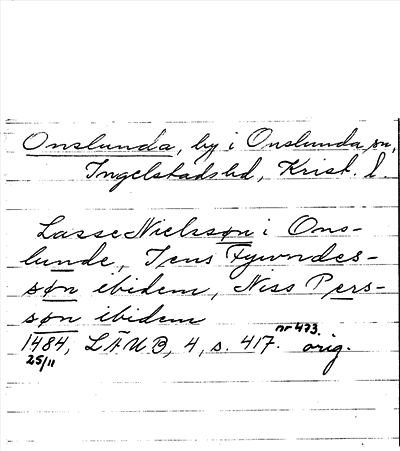 Onslunda, by i Onslunda sn,
Ingelstads hd, Krist. l.
Lasse Nielssøn i Ons-
lunde, Jens Fywndes-
søn ibidem, Niss Pers-
søn ibidem
1484, LÄUB, 4, s. 417. nr 473. orig.
25/11